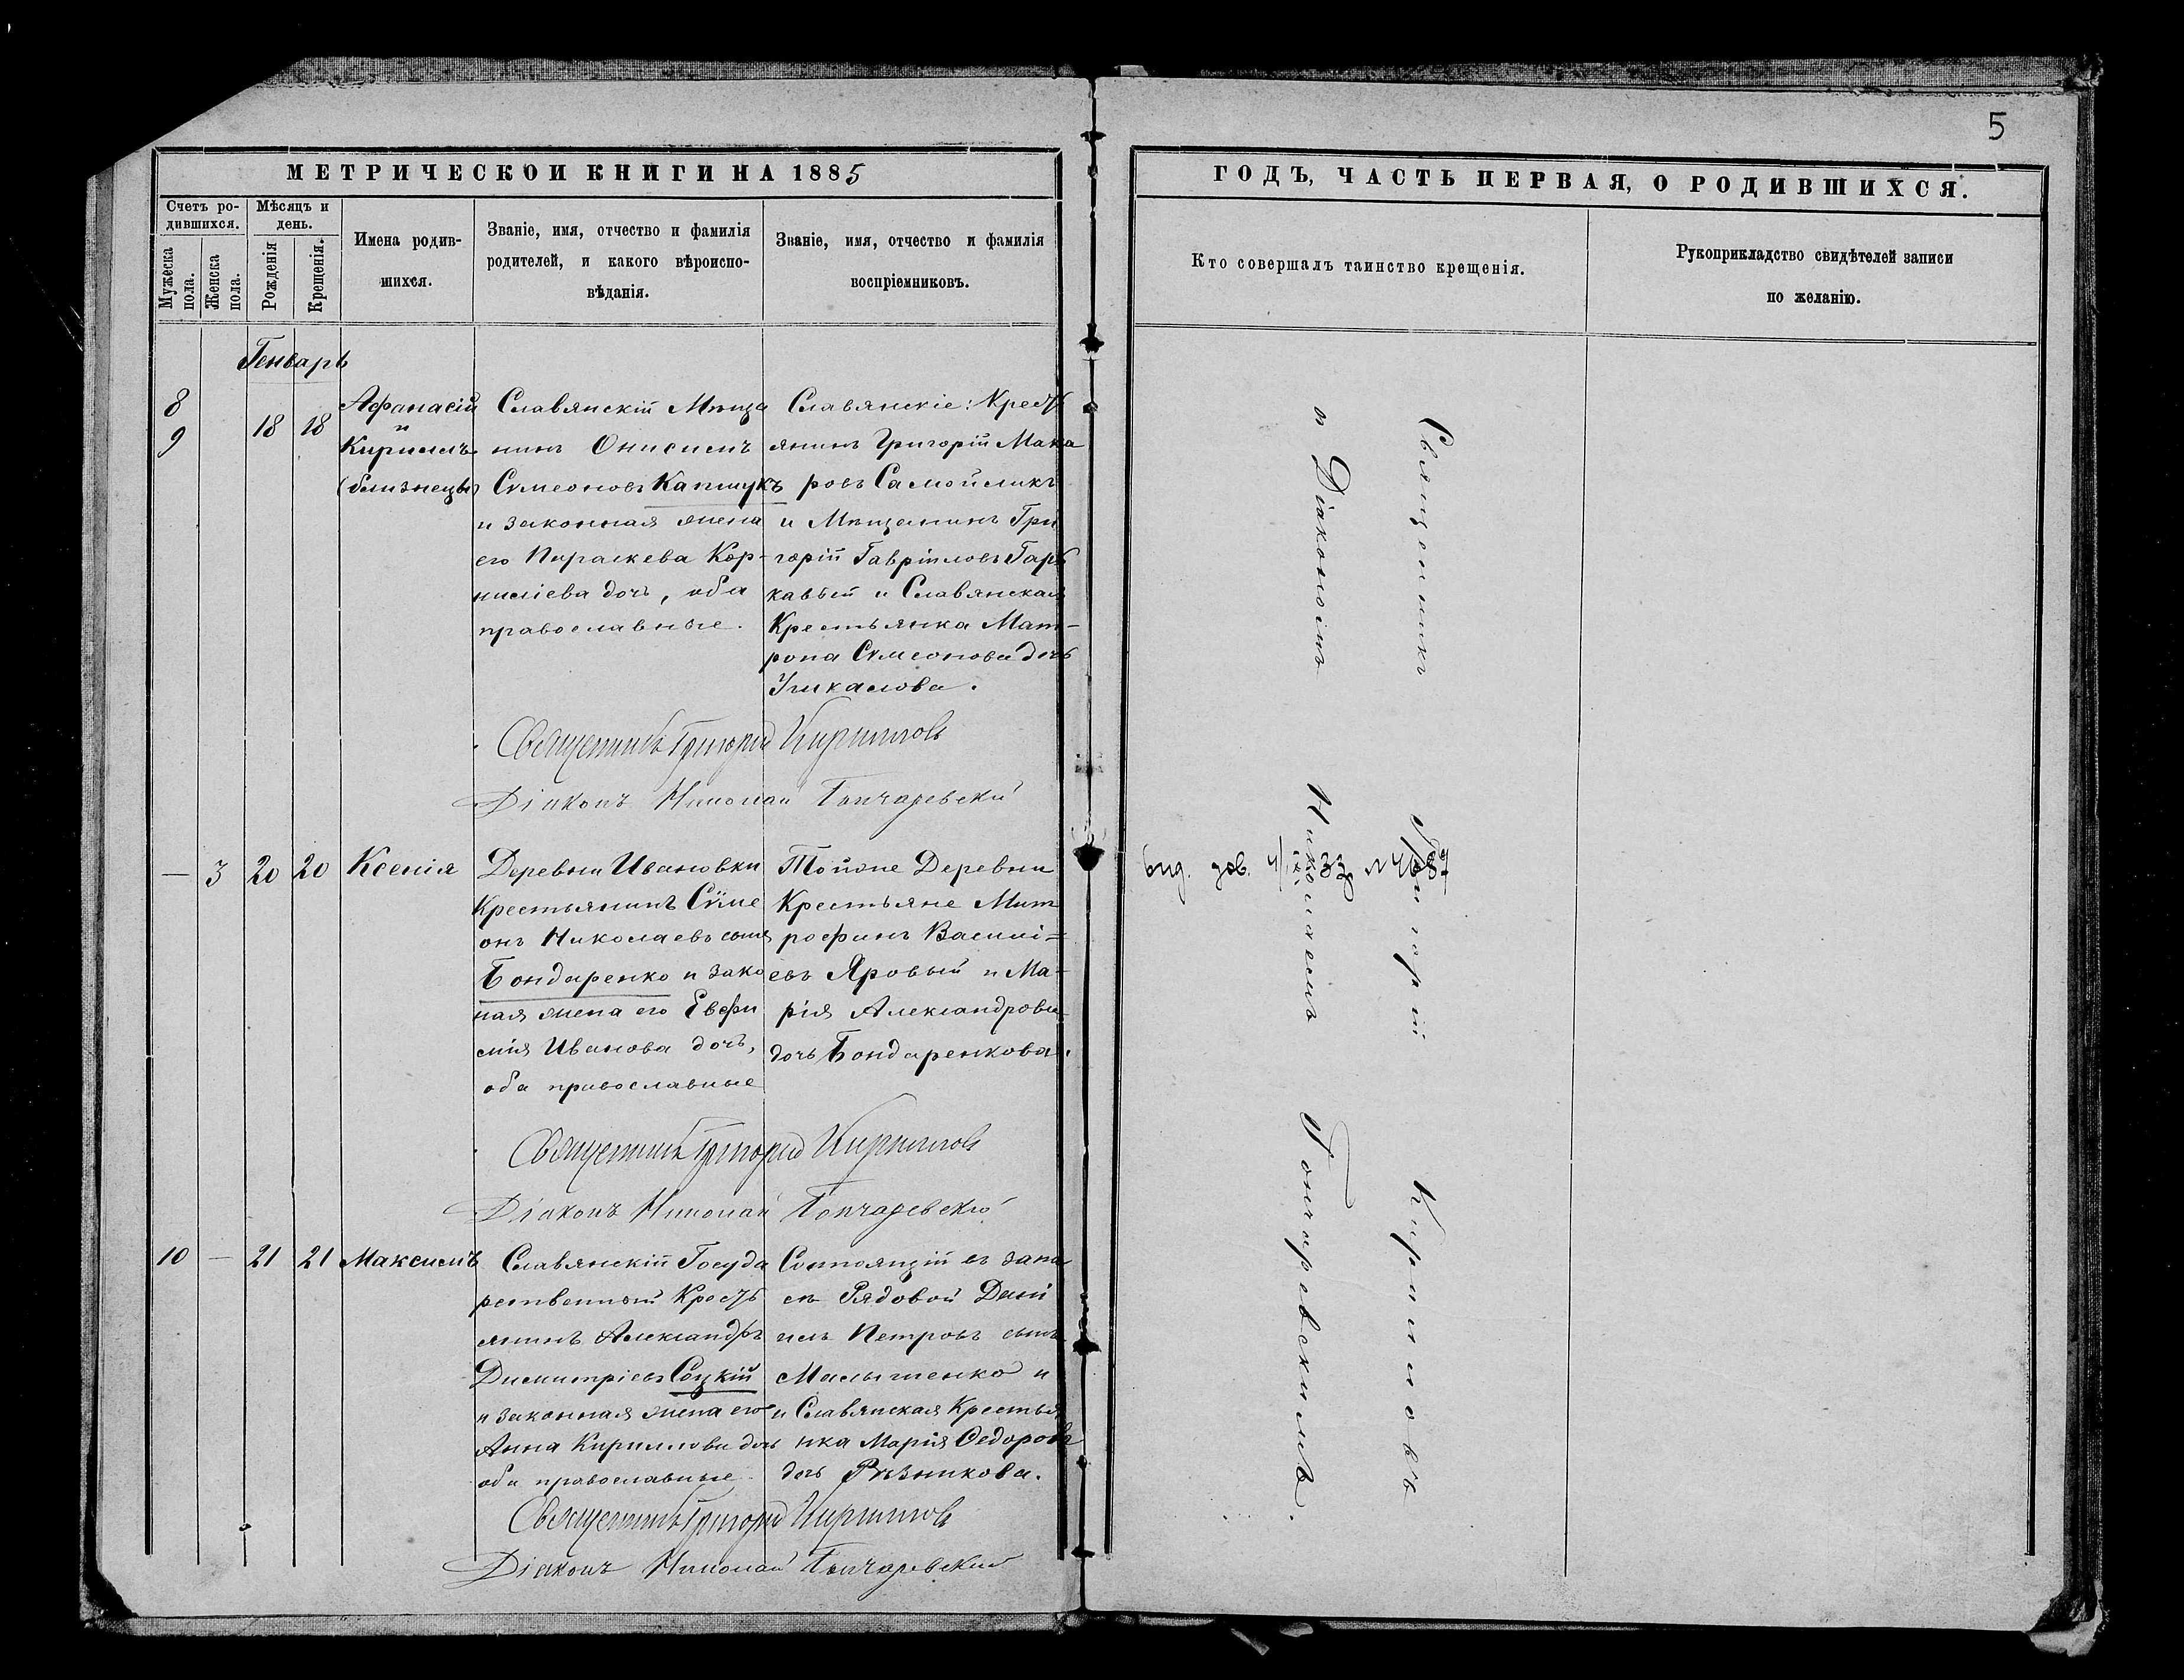 5
МЕТРИЧЕСКОЙ КНИГИ НА 1885
ГОДЪ, ЧАСТЬ ПЕРВАЯ, О РОДИВШИХСЯ.
Счетъ ро-
дившихся.
Мѣсяцъ и
день.
Мужеска
пола.
Женска
пола.
Рожденія
Крещенія.
Имена родив-
шихся.
Званіе, имя, отчество и фамилія
родителей, и какого вѣроиспо-
вѣданія.
Званіе, имя, отчество и фамилія
воспріемниковъ.
Кто совершалъ таинство крещенія.
Рукоприкладство свидѣтелей записи
по желанію.
Генварь
8
9
18 18
Афанасій
и
Кириллъ
(близнецы)
Славянскій Мѣща
нинъ Онисимъ
Сѵмеоновъ Капшукъ
и законная жена
его Параскева Кор-
нилиева дочь, оба
православные.
Славянскіе: Кресть
янинъ Григорій Мака
ровъ Самойликъ
и Мѣщанинъ Гри
горій Гавріиловъ Гарь
кавый и Славянская
Крестьянка Мат-
рона Сѵмеонова дочь
Чикалова.
Священникъ Григорій Кирилловъ
Діаконъ Николай Гончаревскій
— 3 20 20 Ксенія
Деревни Ивановки
Крестьянинъ Сѵме
онъ Николаевъ сынъ
Бондаренко и зако
ная жена его Евфи
мія Иванова дочь,
оба православные
Тойже Деревни
Крестьяне Мит
рофанъ Василі=
евъ Яровый и Ма-
рія Александрова
дочь Бондаренкова.
Священникъ Григорій Кирилловъ
Діаконъ Николай Гончаревскій
10 — 21 21 Максимъ
Славянскій Госуда
рственный Кресть
янинъ Александръ
Димитріевъ Соцкій
и законная жена его
Анна Кириллова дочь
оба православные
Состоящій въ запа
сѣ Рядовой Дані
илъ Петровъ сынъ
Малышенко и
и Славянская Крестья
нка Марія Ѳедорова
дочь Рѣзникова.
Священникъ Григорій Кирилловъ
Діаконъ Николай Гончаревскій
Священникъ Григорій Кирилловъ
о Діакономъ Николаемъ Гончаревскимъ.
вид. дов.